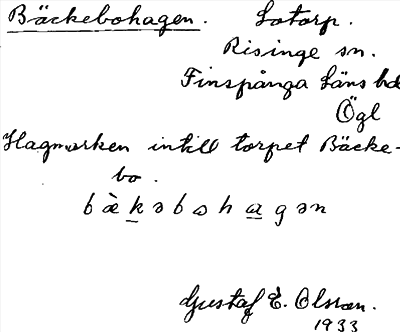 Bäckebohagen. Lotorp.
Risinge sn.
Finspånga läns hd
Ögl
Hagmarken intill torpet Bäcke-
bo.
bækəbohagən
Gustaf E. Olsson.
1933